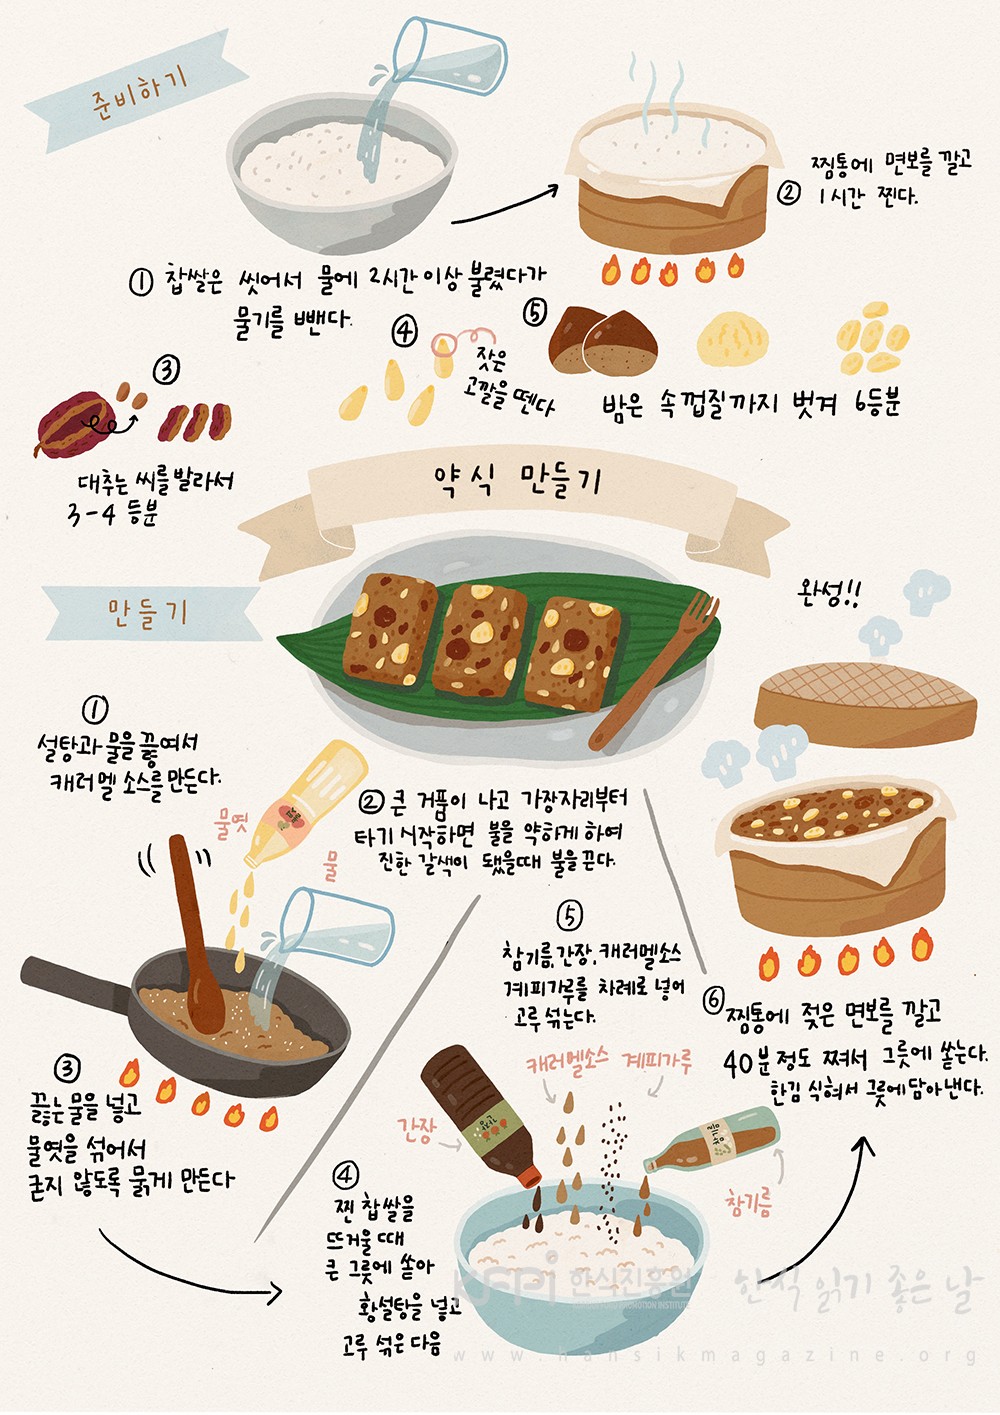 준비하기
① 찹쌀은 씻어서 물에 2시간 이상 불렸다가
물기를 뺀다.
② 찜통에 면보를 깔고
1시간 찐다.
③
대추는 씨를 발라서
3-4 등분
④ 잣은
고깔을 뗀다
⑤
밤은 속껍질까지 벗겨 6등분
약식 만들기
만들기
①
설탕과 물을 끓여서
캐러멜 소스를 만든다.
② 큰 거품이 나고 가장자리부터
타기 시작하면 불을 약하게 하여
진한 갈색이 됐을때 불을 끈다.
물엿
물
③
끓는 물을 넣고
물엿을 섞어서
굳지 않도록 묽게 만든다
④
찐 찹쌀을
뜨거울 때
큰 그릇에 쏟아
황설탕을 넣고
고루 섞은 다음
⑤
참기름, 간장, 캐러멜소스
계피가루를 차례로 넣어
고루 섞는다.
캐러멜소스 계피가루
간장
참기름
⑥ 찜통에 젖은 면보를 깔고
40분 정도 쪄서 그릇에 쏟는다.
한김 식혀서 그릇에 담아 낸다.
완성!!
KFPI 한식진흥원 한식 읽기 좋은 날
www.hansikmagazine.org